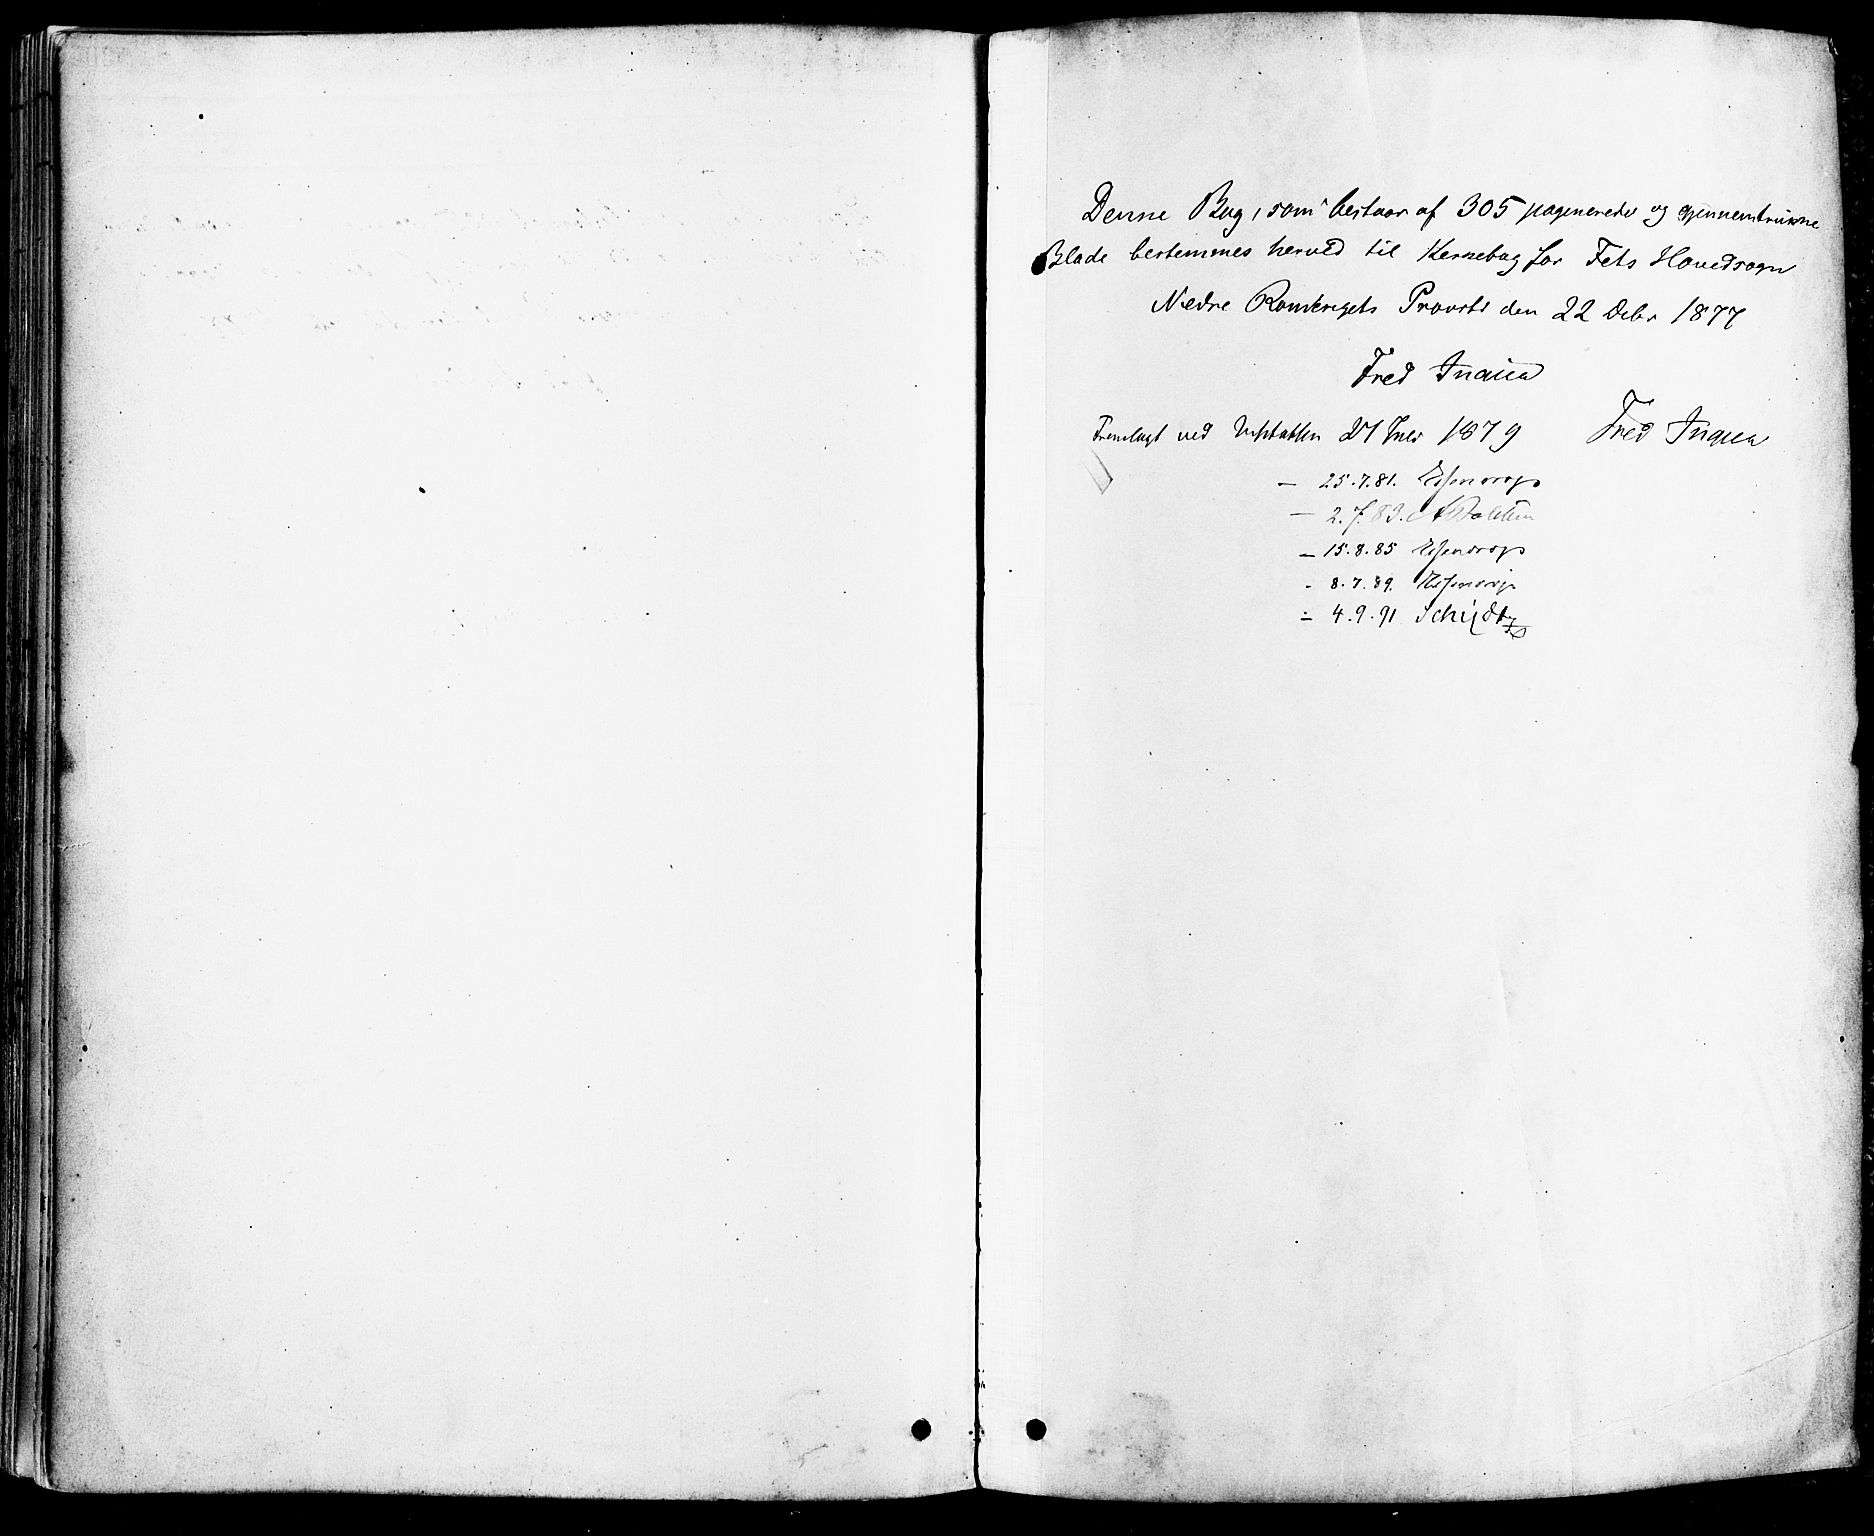 Denne Bog, som bestaar af 305 paginerede og gjennemtrukne
Blade bestemmes herved til Kirkebog for Fets Hovedsogn
Nedre Romerigets Provsti den 22 Debr 1877
Fred
Fremlagt ved Visitatsen 27 Juli 1879 Fred
— 25.7.81. Essendrop
— 2.7.83.
— 15.8.85 Essendrop
- 8.7.89. Essendrop
- 4.9.91